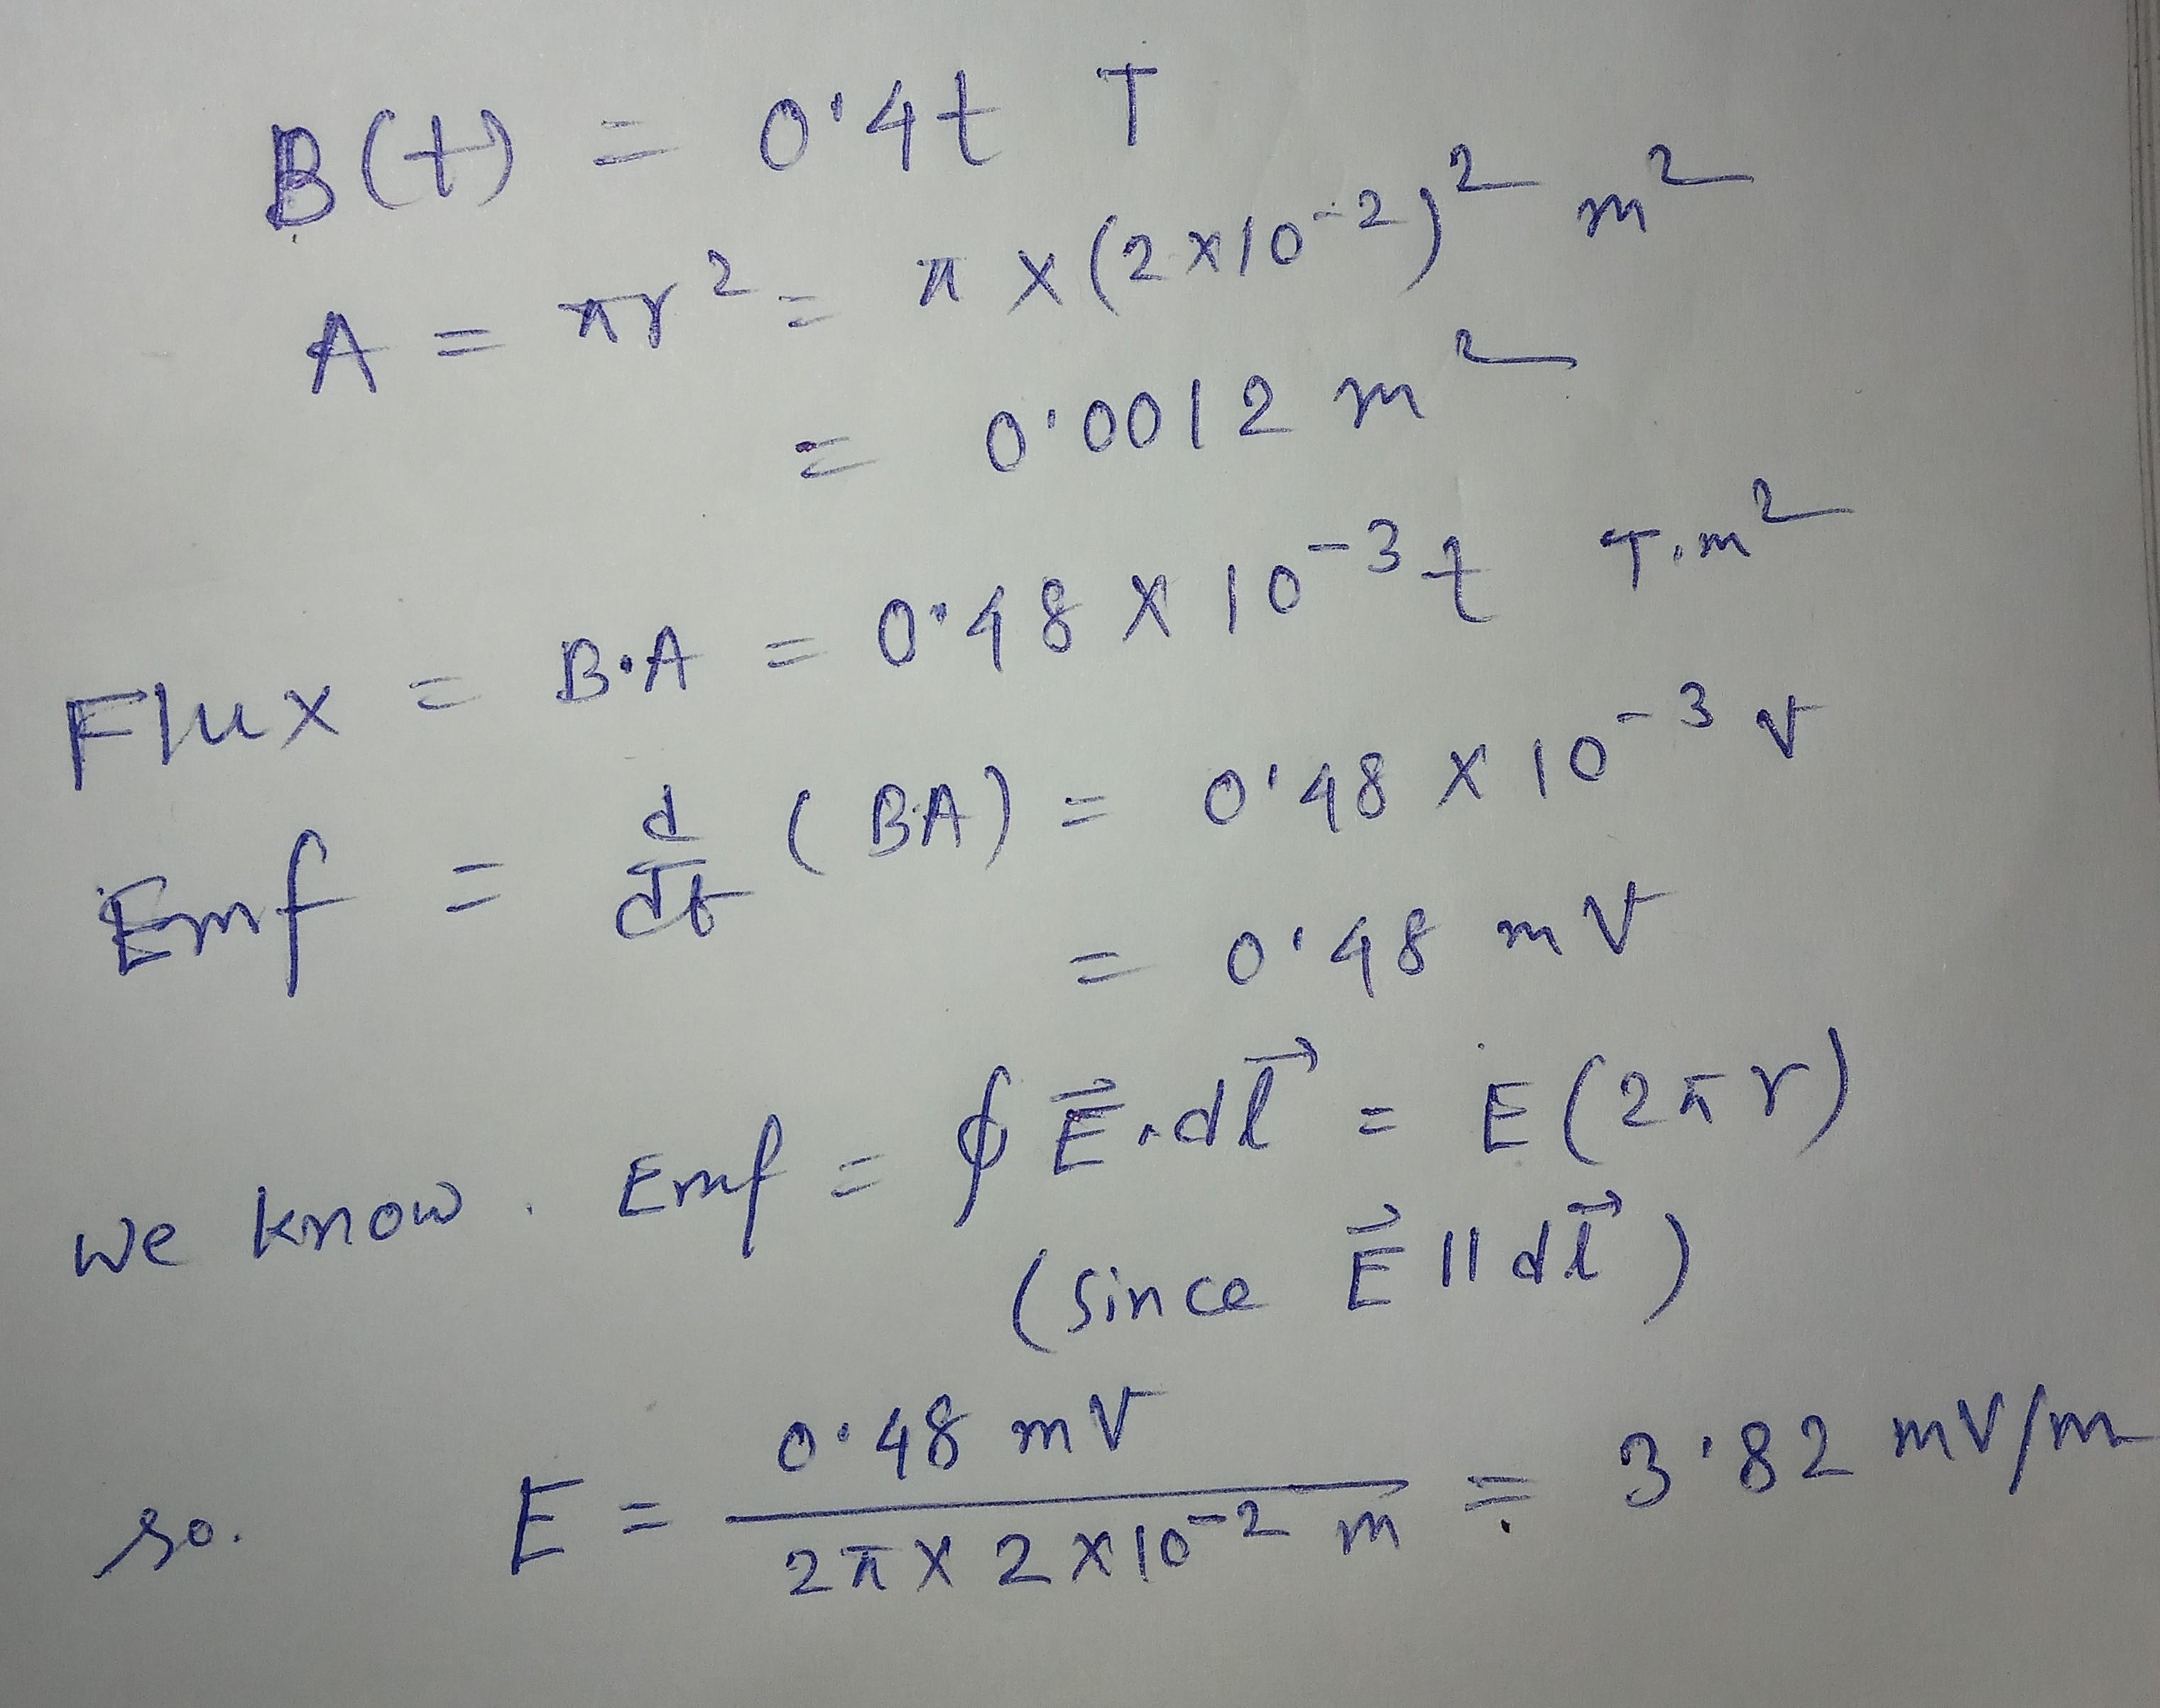 B(t) = 0.4t T
A = πr² = π × (2×10⁻²)² m²
= 0.0012 m²
Flux = B.A = 0.48 × 10⁻³ t T.m²
Emf = d/dt (BA) = 0.48 × 10⁻³ V
= 0.48 mV
We know. Emf = ∮ E⃗.dl⃗ = E(2πr)
(Since E⃗ || dl⃗)
so. E = 0.48 mV / 2π × 2 × 10⁻² m = 3.82 mV/m